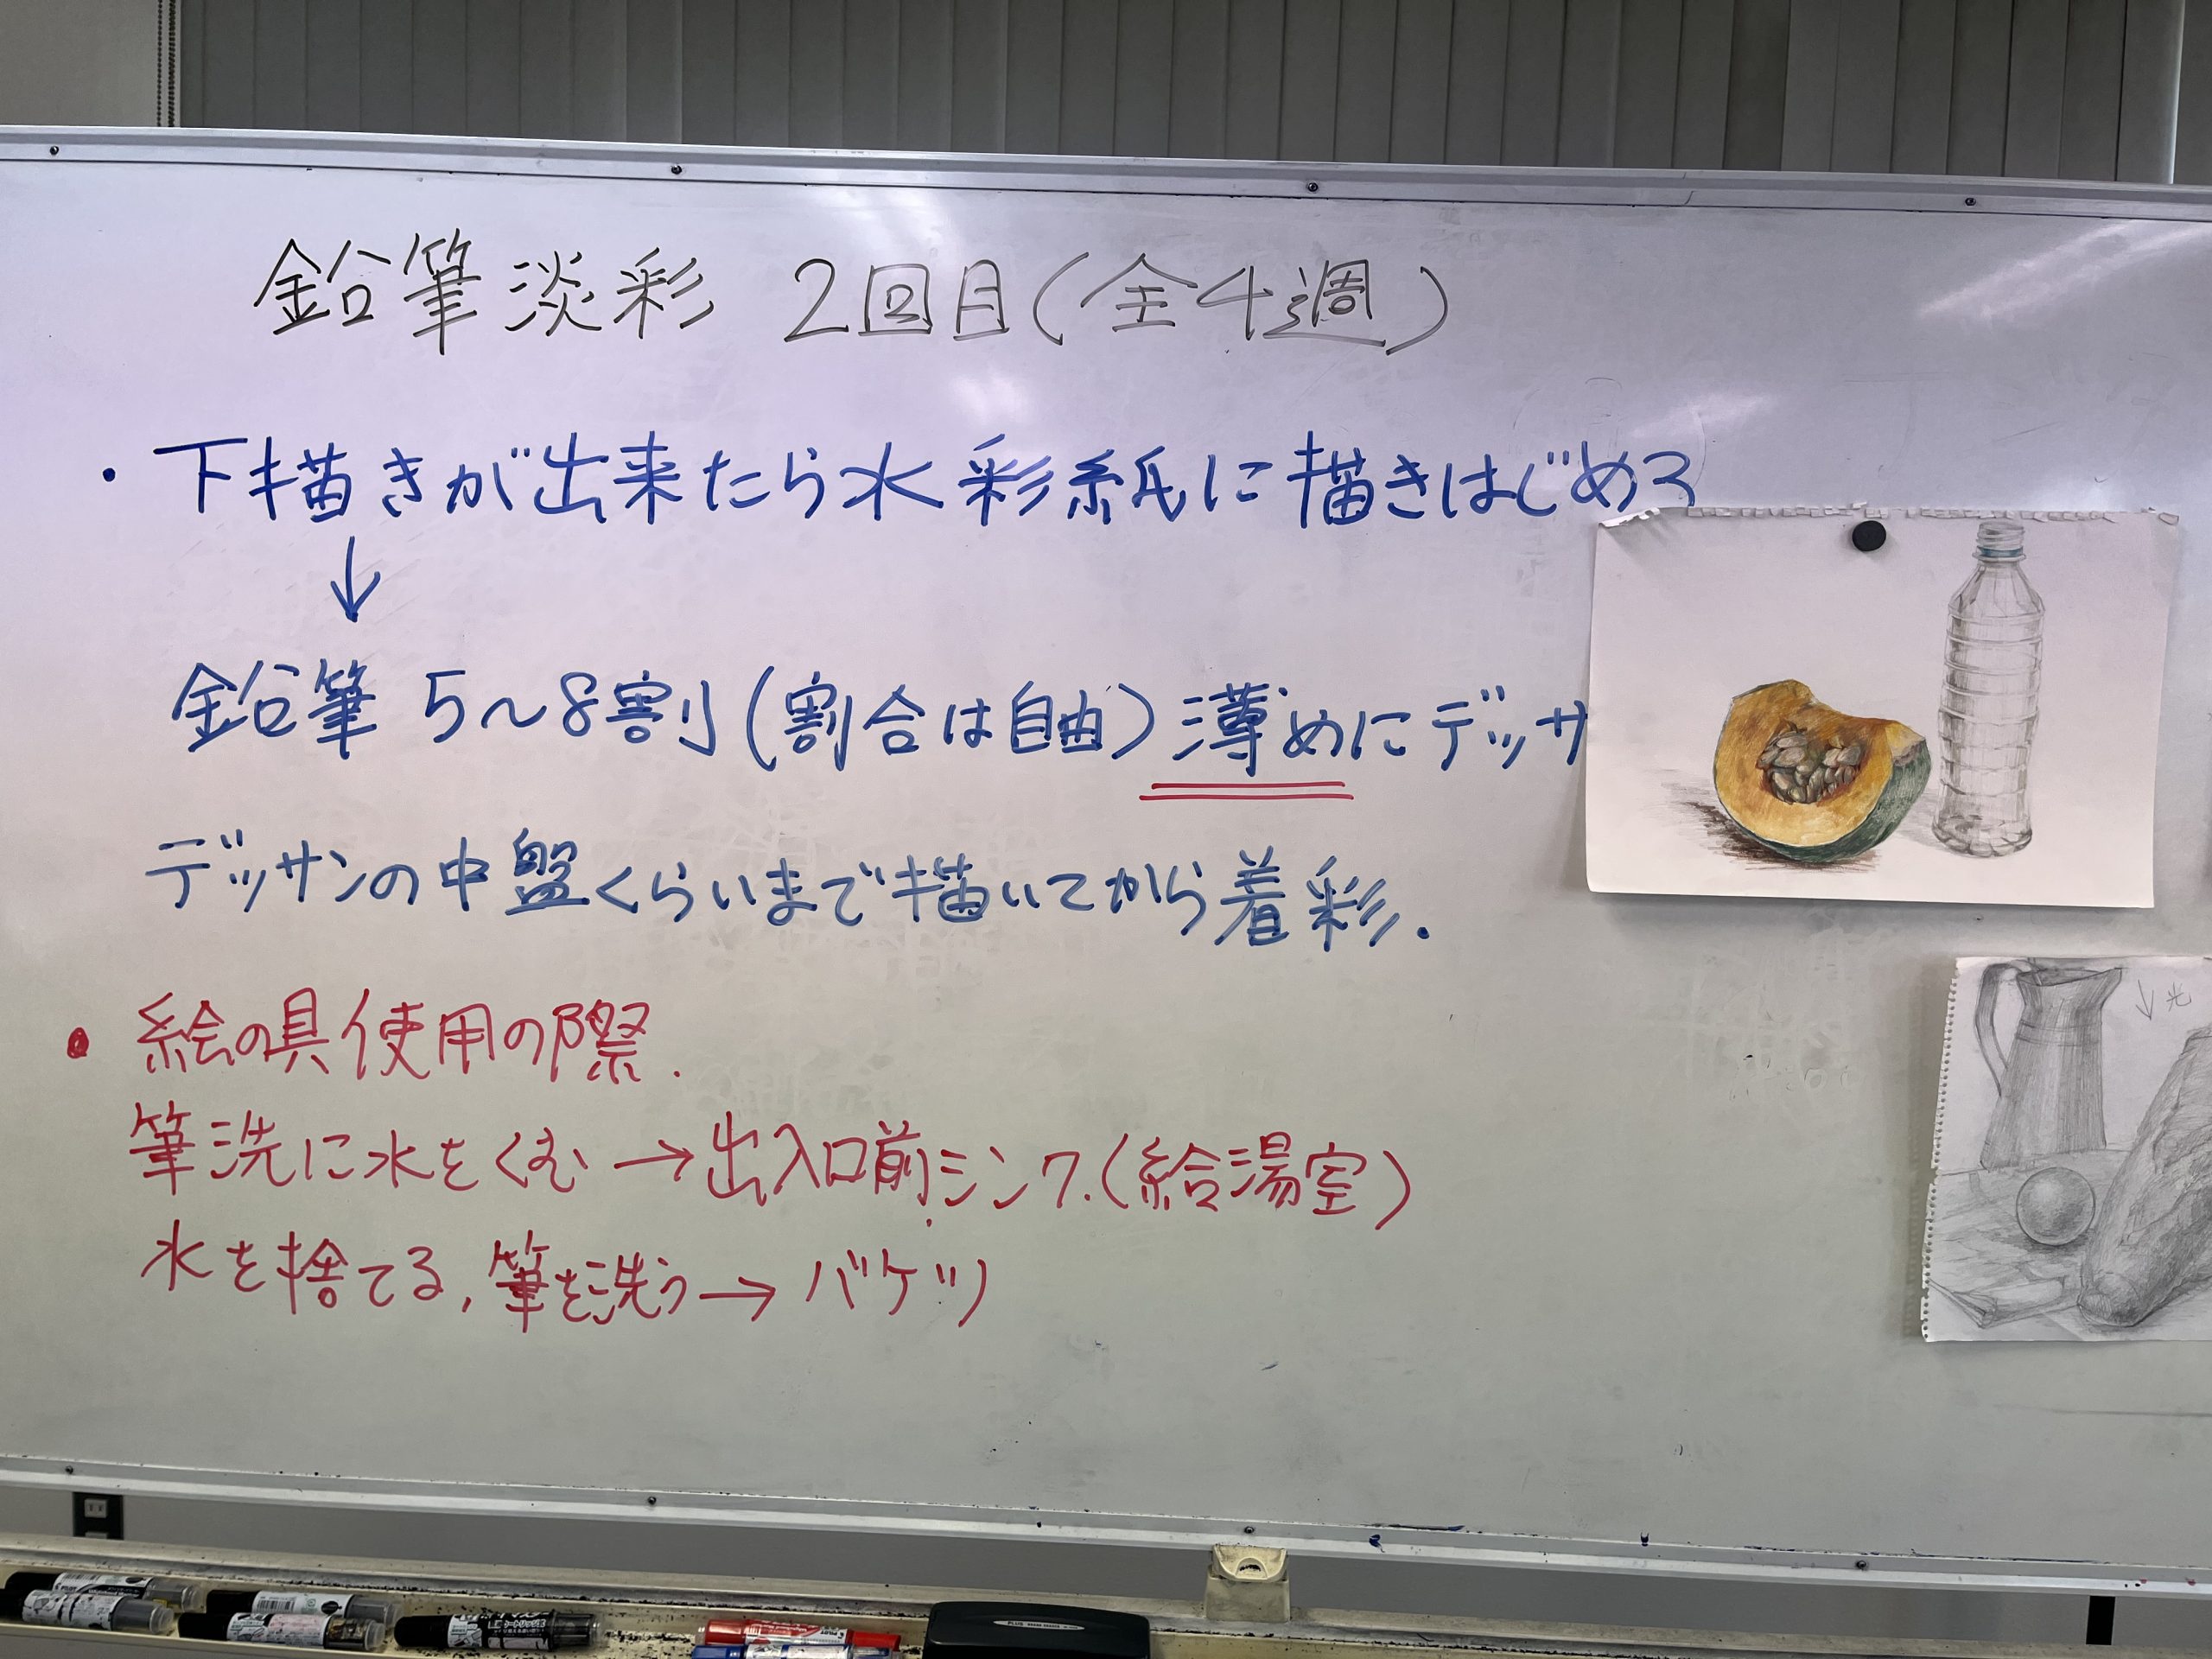 鉛筆淡彩 2回目(全4週)
・下描きが出来たら水彩紙に描きはじめる
↓
鉛筆 5〜8割(割合は自由)薄めにデッサ
デッサンの中盤くらいまで描いてから着彩.
・絵の具使用の際.
筆洗に水をくむ→出入口前シンク.(給湯室)
水を捨てる,筆を洗う→バケツ
↓光
PLUS